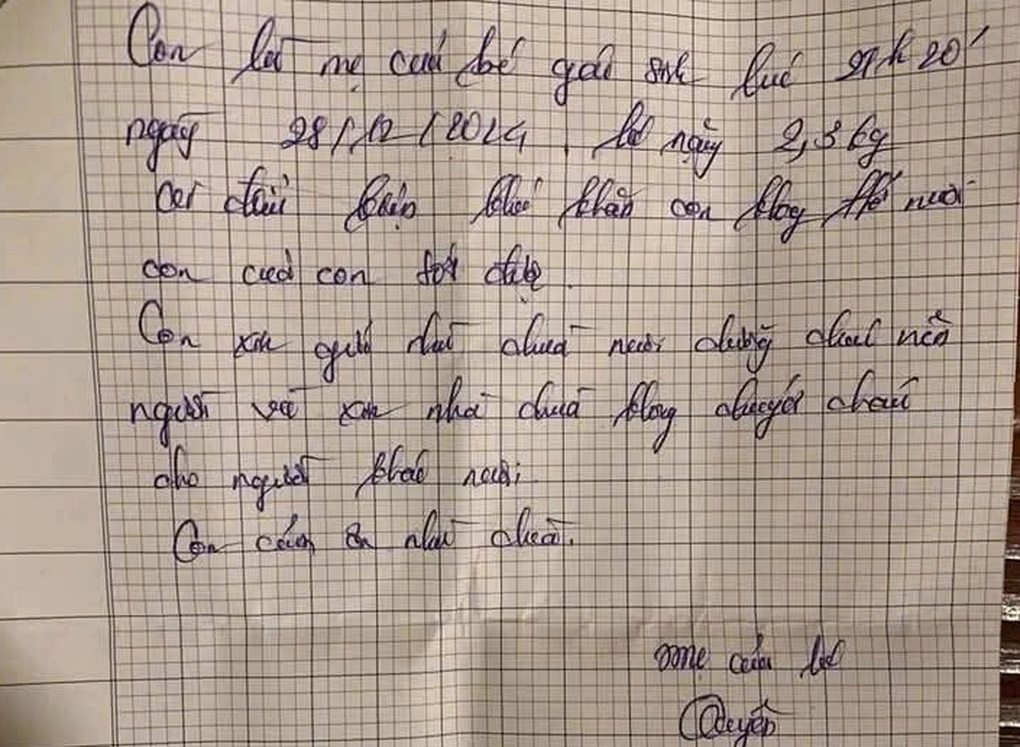 Con là mẹ của bé gái sinh lúc 21h20'
ngày 28/12/2024. bé nặng 2,3 kg
khó khăn con không thể nuôi
con của con tốt được.
Con xin gửi nhà chùa nuôi dưỡng cháu nên
người và xin nhà chùa không chuyển cháu
cho người khác nuôi.
Con cám ơn nhà chùa.
mẹ của bé
Quyến